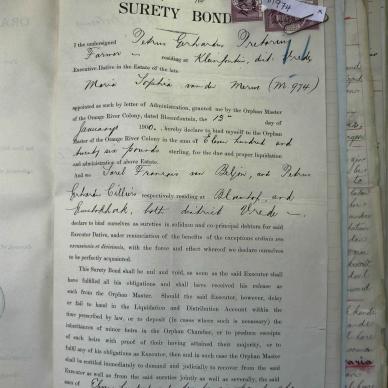 SURETY BOND
M974
I the undersigned Petrus Gerhardus Pretorius
Farmer residing at Klipfontein, dist. Vrede
Executive Dative in the Estate of the late
Maria Sophia van der Merwe (M. 974)
appointed as such by letter of Administration, granted me by the Orphan Master
of the Orange River Colony, dated Bloemfontein, the 13th day of
January 190, hereby declare to bind myself to the Orphan
Master of the Orange River Colony in the sum of Eleven hundred and
twenty six pounds sterling, for the due and proper liquidation
and administration of above Estate.
And we Carel François van and Petrus
Gerhardus Cilliers respectively residing at and
both district Vrede
declare to bind ourselves as sureties in solidum and co-principal debtors for said
Executor Dative, under renunciation of the benefits of the exceptions ordinis seu
excussionis et divisionis, with the force and effect whereof we declare ourselves
to be perfectly acquainted.
This Surety Bond shall be null and void, as soon as the said Executor shall
have fulfilled all his obligations and shall have received his release as
such from the Orphan Master. Should the said Executor, however, delay
or fail to hand in the Liquidation and Distribution Account within the
time prescribed by law, or to deposit (in Cases where such is necessary) the
inheritance of minor heirs in the Orphan Chamber, or to produce receipts
of such heirs with proof of their having attained their majority, or to
fulfil any of his obligations as Executor, then and in such case the Orphan Master
shall be entitled immediately to demand and judicially to recover from the said
Executor as well as from the said sureties jointly as well as severally, the said
sum of Eleven hundred